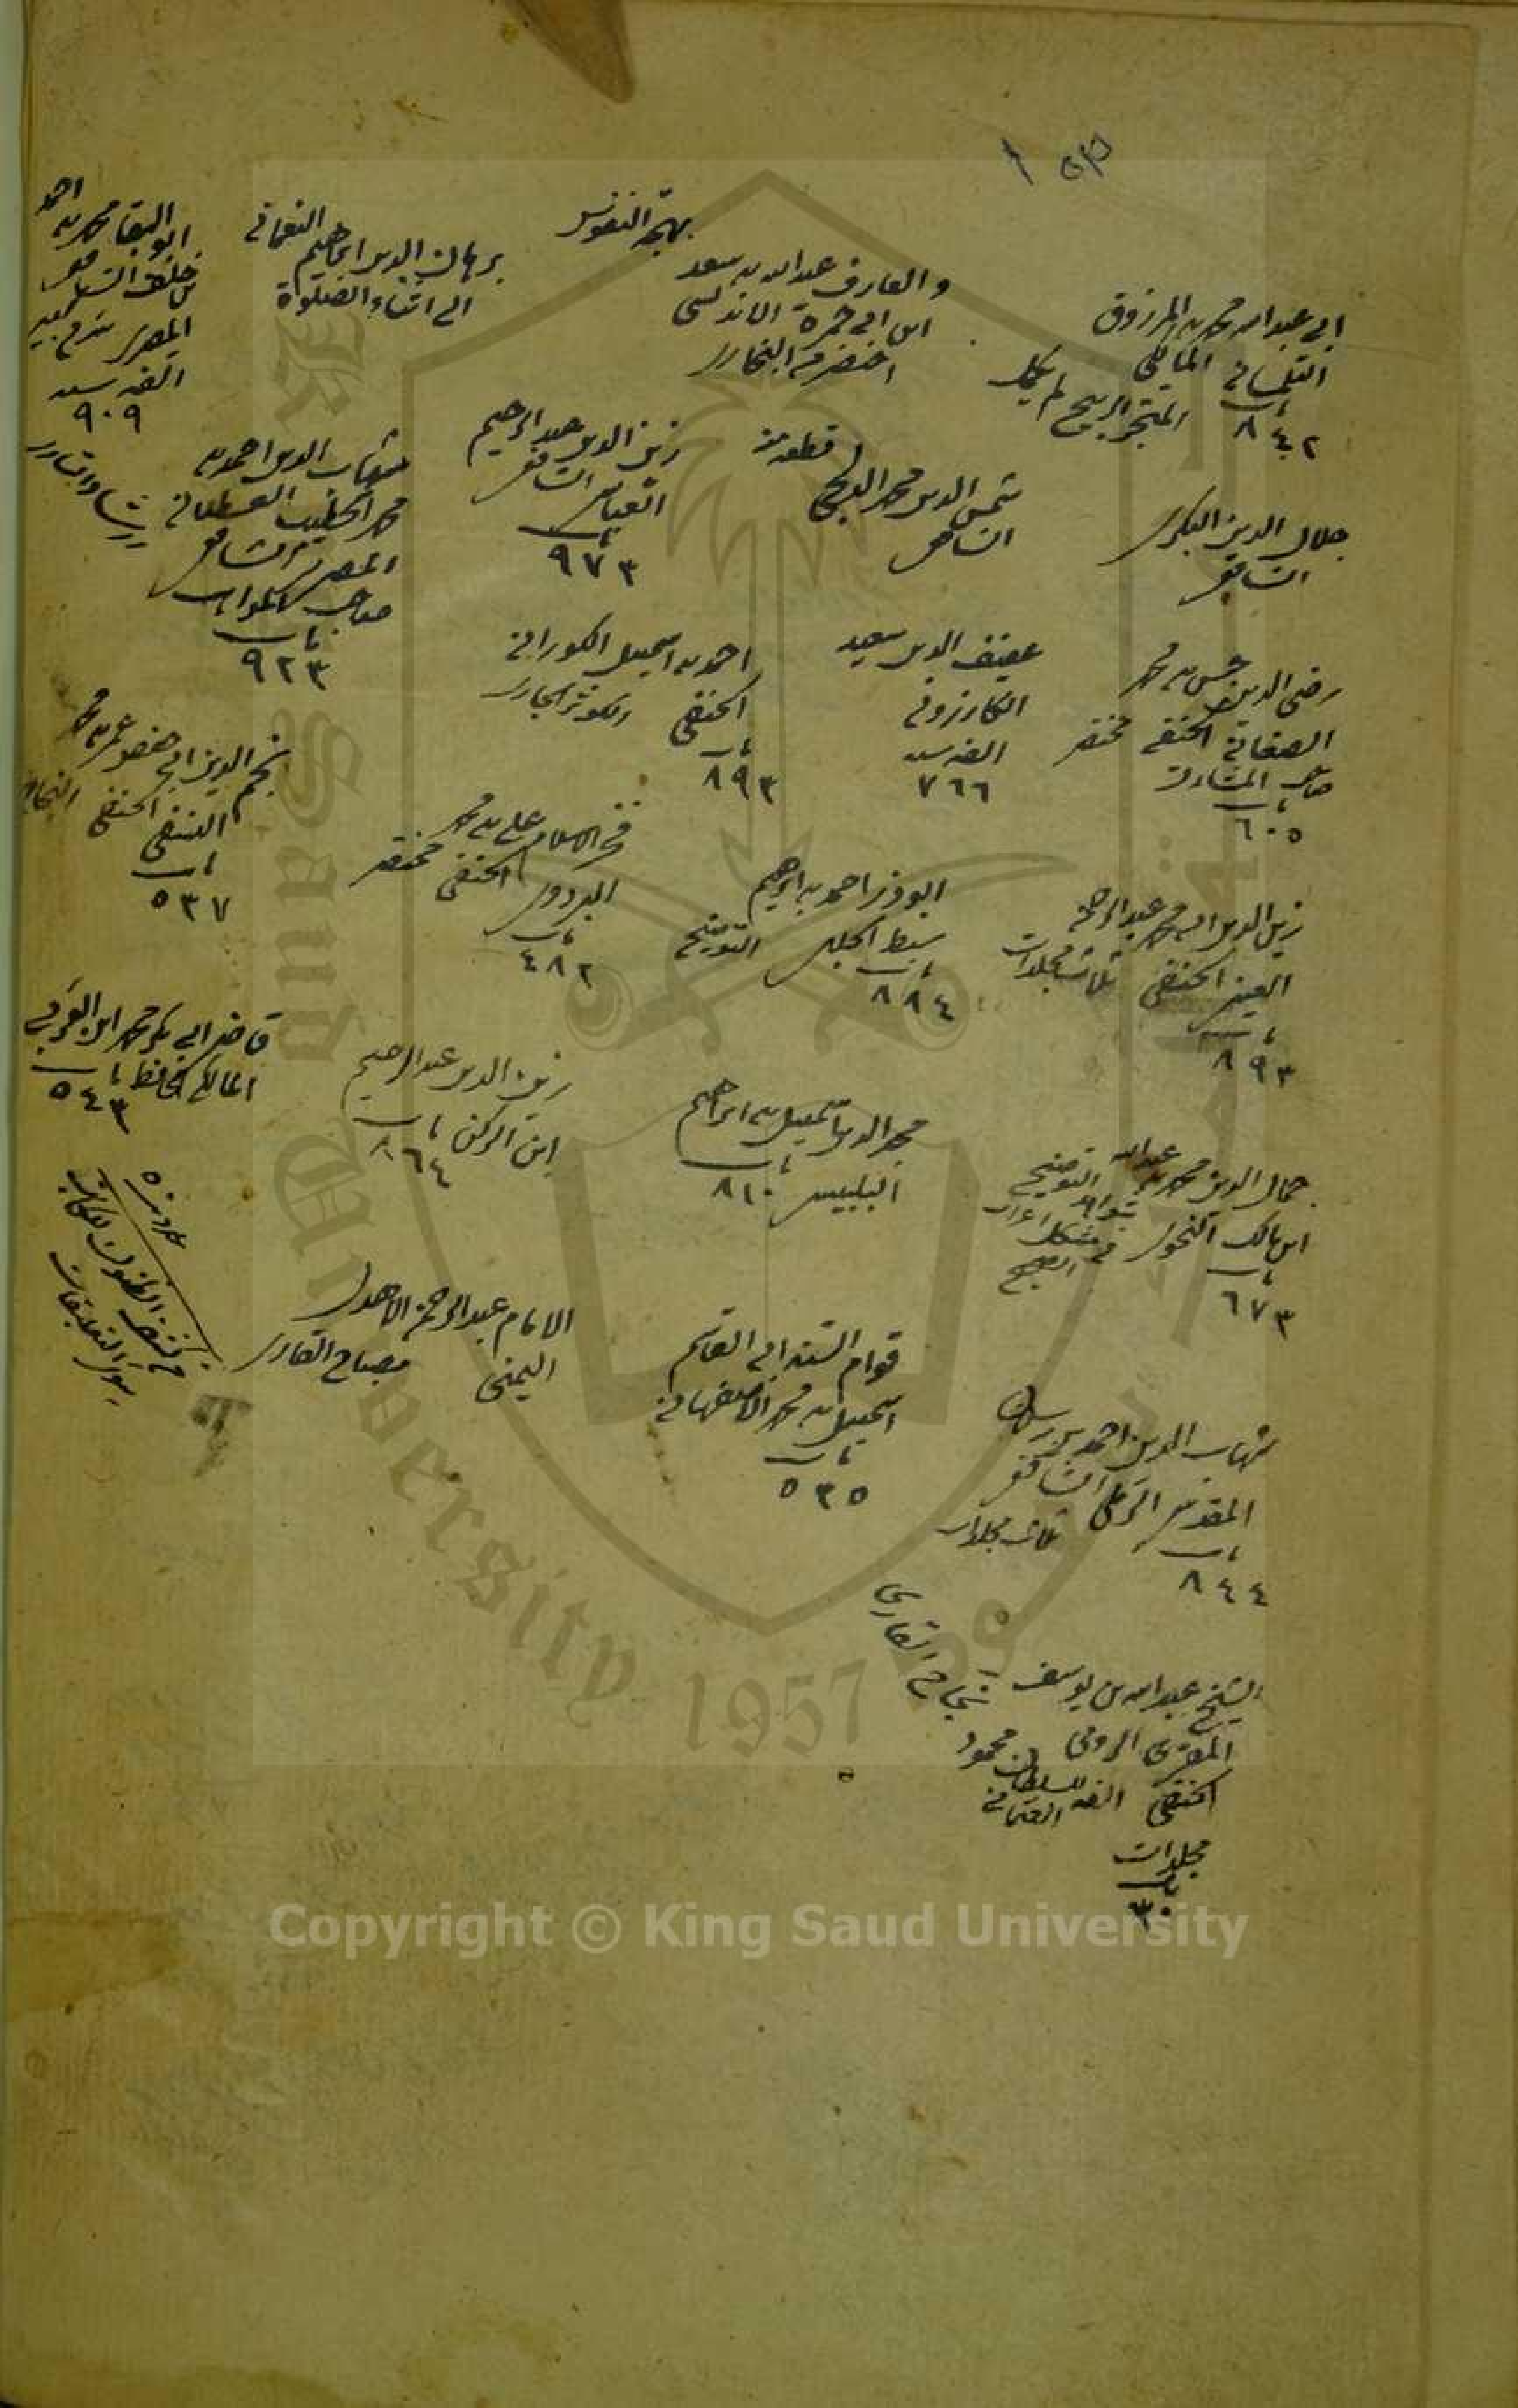 ابي عبد الله محمد بن المرزوق
التلمساني المالكي
المتجر الربيح لم يكمل
مات
٨٤٢
بهجة النفوس
والعارف عبد الله بن سعد
ابن ابي جمرة الاندلسي
اختصر فيه البخاري
برهان الدين ابراهيم النعماني
الى اثناء الصلوة
ابو البقا محمد بن احمد
خلف الشافعي
المصري شرح كبير
الفه سنة
٩٠٩
جلال الدين البكري
الشافعي
قطعة من
شمس الدين محمد الدلجي
الشافعي
زين الدين عبد الرحيم
العباسي الشافعي
مات
٩٧٣
شهاب الدين احمد بن
محمد الخطيب القسطلاني
المصري الشافعي
صاحب المواهب
مات
٩٢٣
رضي الدين حسن بن محمد
الصغاني الحنفي مختصر
صاحب المشارق
مات
٦٠٥
عفيف الدين سعيد
الكازروني
الفه سنة
٧٦٦
احمد بن اسمعيل الكوراني
الحنفي الكوثر الجاري
مات
٨٩٣
نجم الدين ابي حفص عمر بن محمد
النسفي الحنفي النجاح
مات
٥٣٧
زين الدين ابي محمد عبد الرحمن
العيني الحنفي ثلاث مجلدات
مات
٨٩٣
ابو ذر احمد بن ابراهيم
سبط الحلبي التوضيح
مات
٨٨٤
فخر الاسلام علي بن محمد
البزدوي الحنفي مختصر
مات
٤٨٢
قاضي ابي بكر محمد ابن العربي
المالكي الحافظ مات
٥٤٣
جمال الدين محمد بن عبد الله
ابن مالك النحوي
شواهد التوضيح
في مشكل اعراب
الصحيح
مات
٦٧٣
مجد الدين اسمعيل بن ابراهيم
البلبيسي مات
٨١٠
زين الدين عبد الرحيم
ابن الركن مات
٨٦٤
كشف الظنون
سوى التعليقات
شهاب الدين احمد بن رسلان
المقدسي الرملي الشافعي
ثلاث مجلدات
مات
٨٤٤
قوام السنة ابي القاسم
اسمعيل بن محمد الاصفهاني
مات
٥٣٥
الامام عبد الرحمن الاهدل
اليمني مصباح القاري
الشيخ عبد الله بن يوسف نجاح القاري
المقري الرومي
الحنفي الفه للسلطان محمود
العثماني
مجلدات
٣٠
Copyright © King Saud University
King Saud University 1957